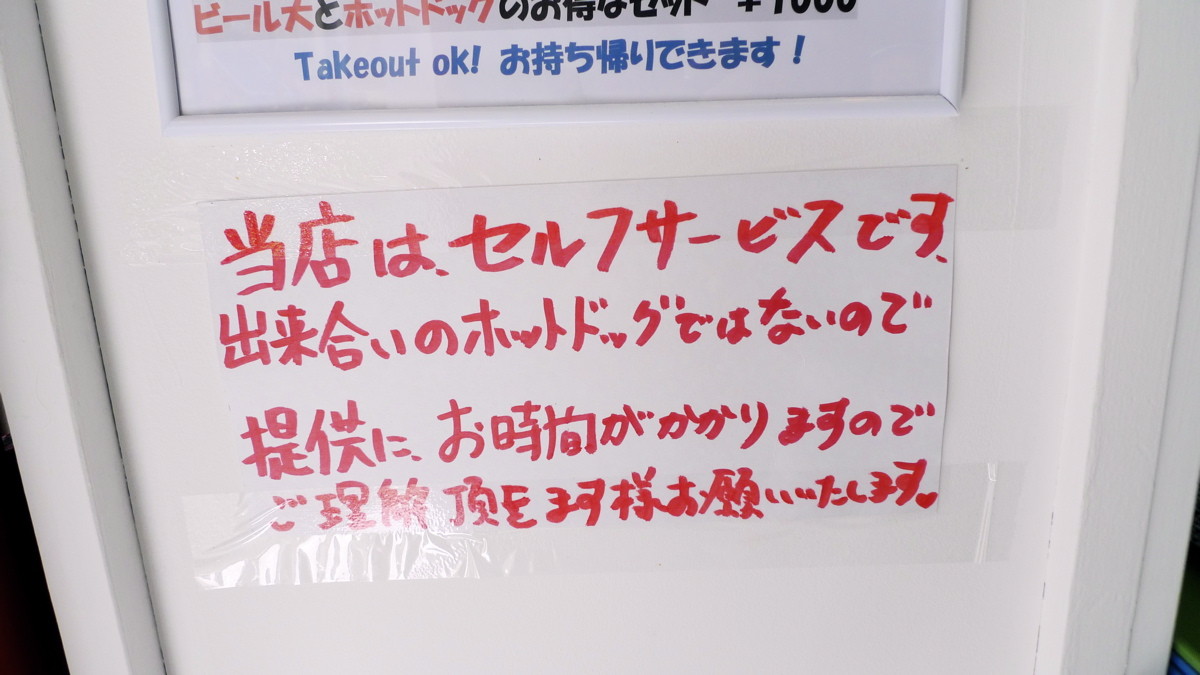 ビール大とホットドッグのお得なセット ¥1000
Takeout ok! お持ち帰りできます！
当店は、セルフサービスです、
出来合いのホットドッグではないので
提供に、お時間がかかりますので
ご理解頂きます様お願いいたします♥